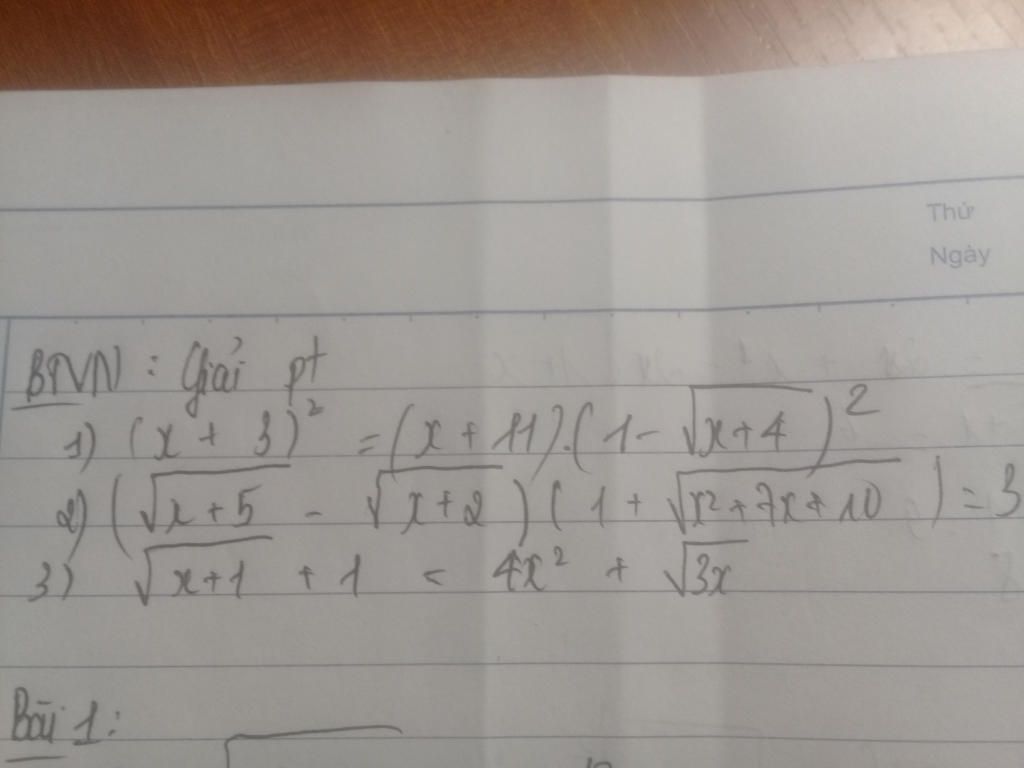 Thứ
Ngày
BTVN : Giải pt
1) (x + 3)² = (x + 11).(1 - √(x+4))²
2) (√(x+5) - √(x+2))(1 + √(x²+7x+10)) = 3
3) √(x+1) + 1 = 4x² + √(3x)
Bài 1: